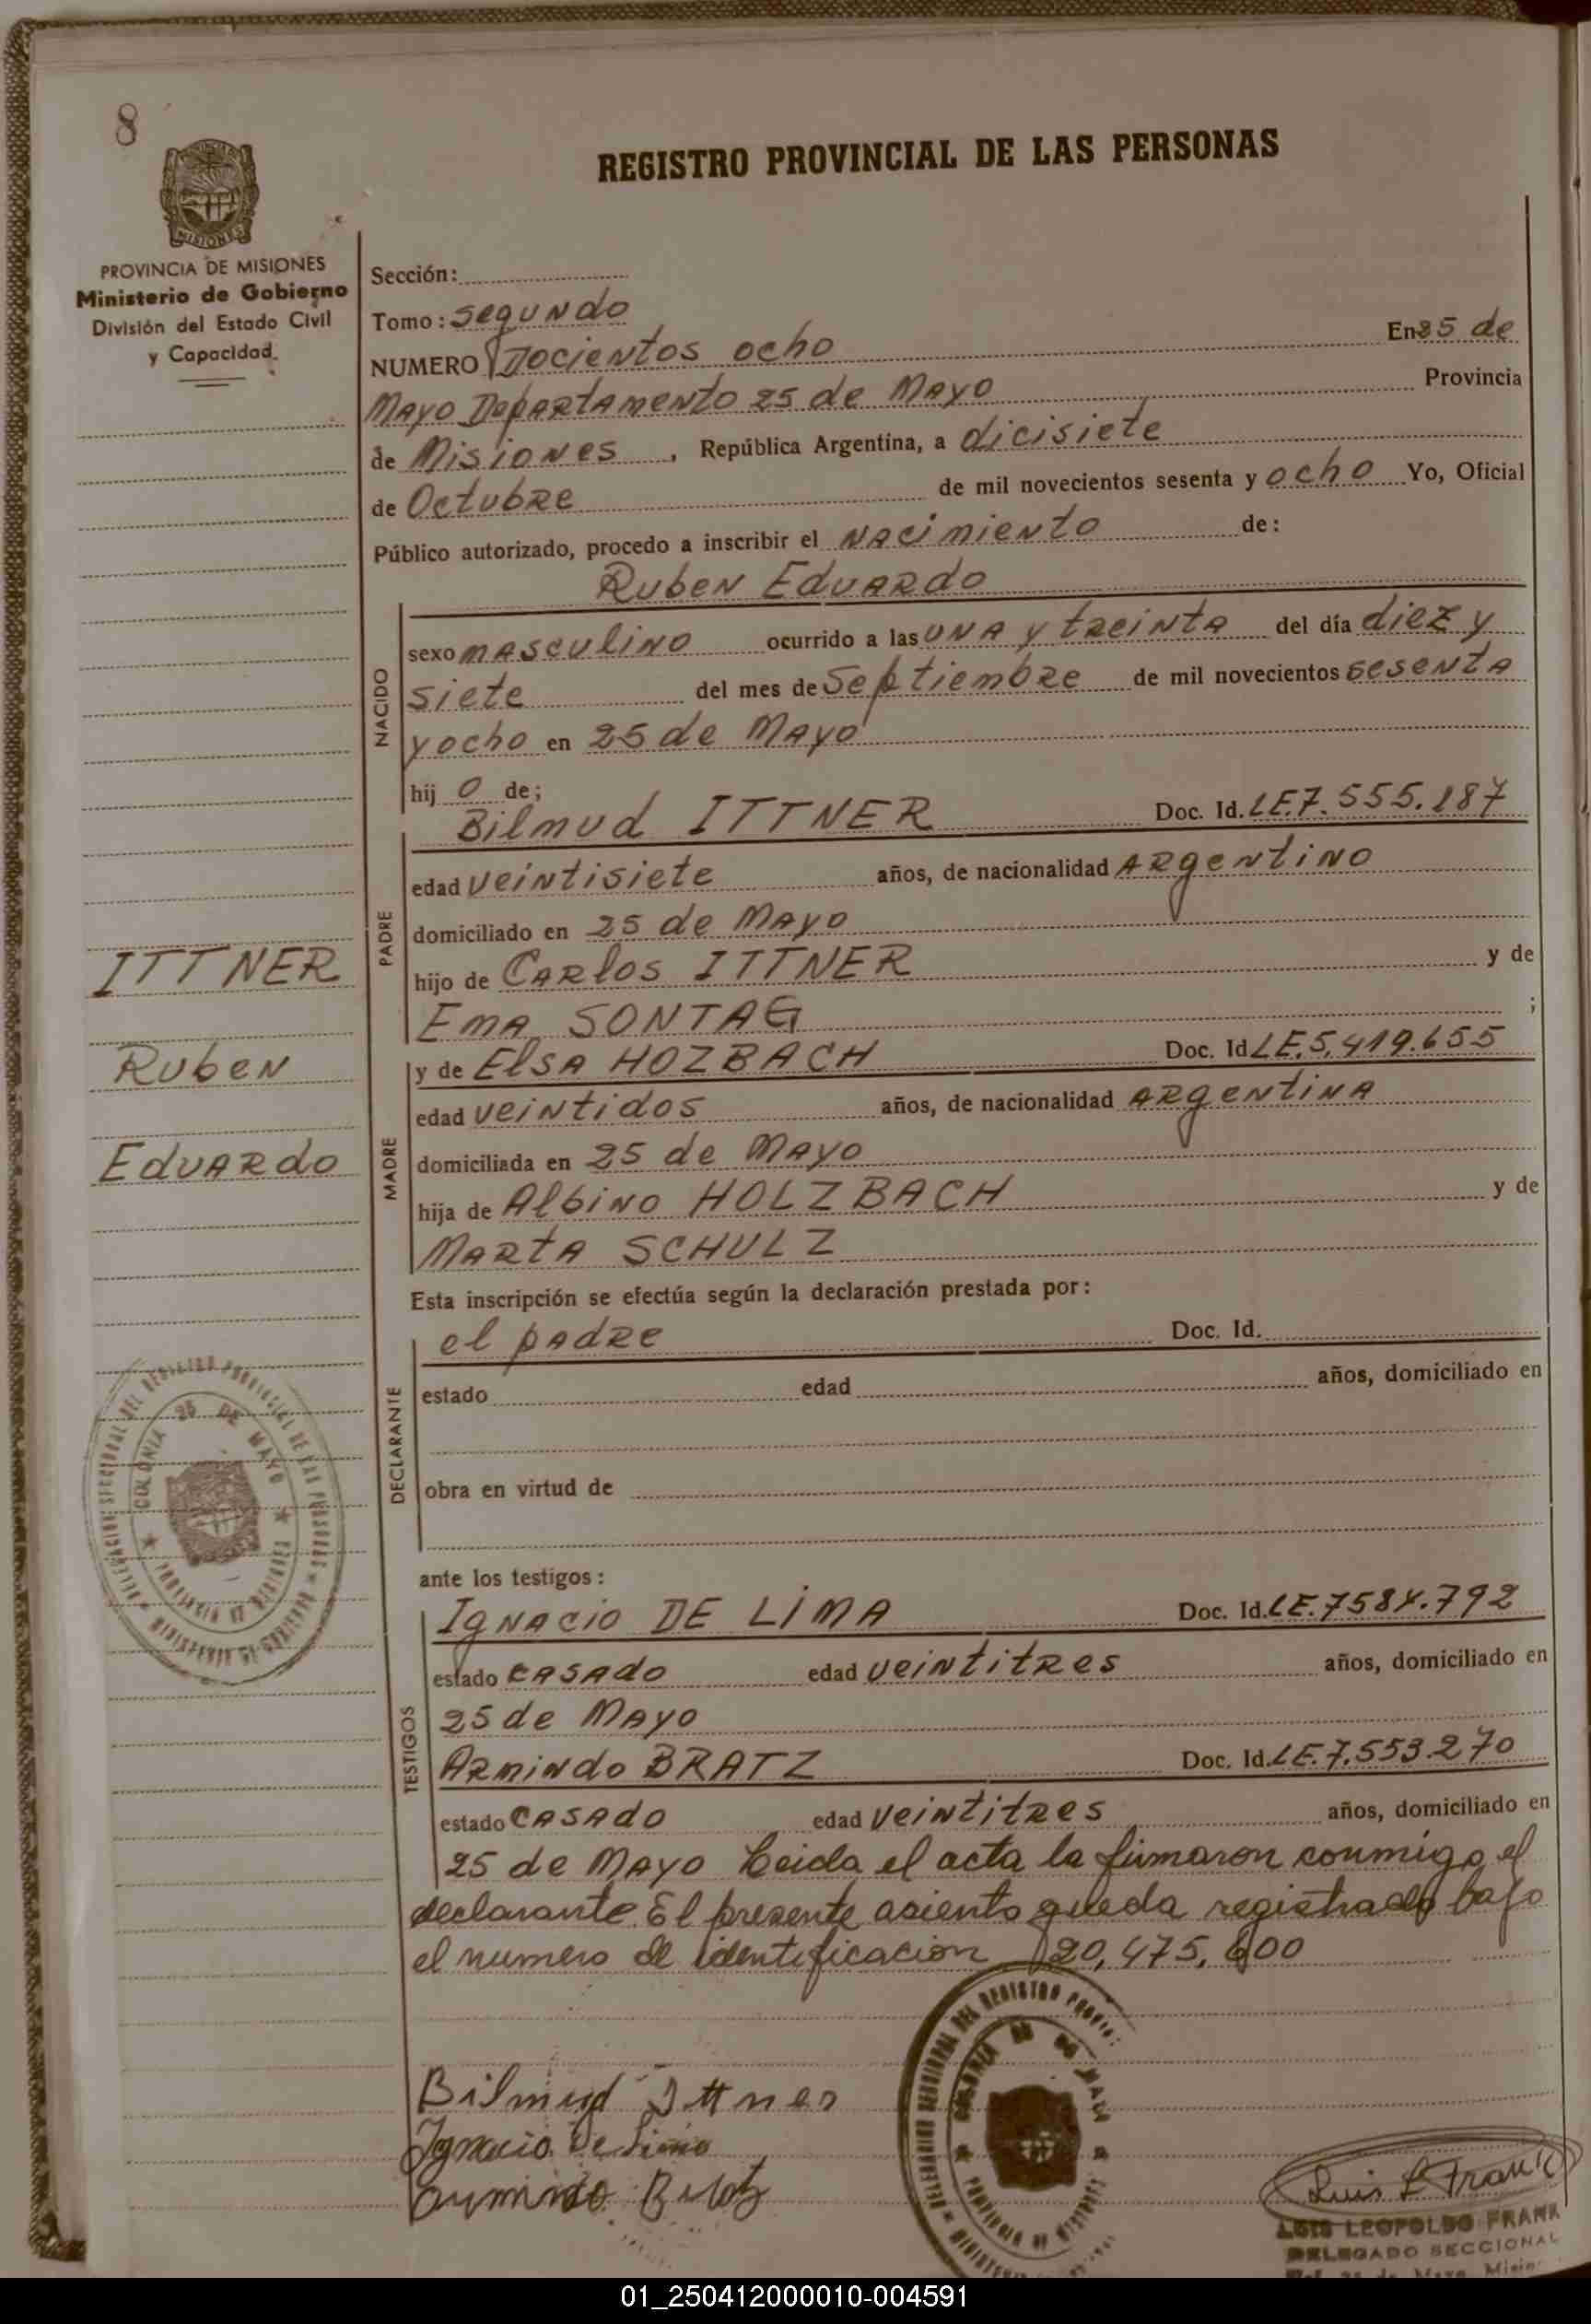 8
MISIONES
PROVINCIA DE MISIONES
Ministerio de Gobierno
División del Estado Civil
y Capacidad.
REGISTRO PROVINCIAL DE LAS PERSONAS
Sección:
Tomo: segundo
NUMERO Docientos ocho En 25 de
Mayo Departamento 25 de Mayo Provincia
de Misiones, República Argentina, a dicisiete
de Octubre de mil novecientos sesenta y ocho Yo, Oficial
Público autorizado, procedo a inscribir el nacimiento de:
Ruben Eduardo
NACIDO
sexo masculino ocurrido a las una y treinta del día diez y
siete del mes de Septiembre de mil novecientos sesenta
y ocho en 25 de Mayo
hij o de;
Bilmud ITTNER Doc. Id. LE.7.555.187
PADRE
edad veintisiete años, de nacionalidad Argentino
domiciliado en 25 de Mayo
hijo de Carlos ITTNER y de
Ema SONTAG ;
y de Elsa HOZBACH Doc. Id LE.5.419.655
MADRE
edad veintidos años, de nacionalidad Argentina
domiciliada en 25 de Mayo
hija de Albino HOLZBACH y de
Marta SCHULZ
ITTNER
Ruben
Eduardo
Esta inscripción se efectúa según la declaración prestada por:
el padre Doc. Id.
DECLARANTE
estado edad años, domiciliado en
obra en virtud de
COLONIA 25 DE MAYO
PROVINCIA DE MISIONES
ante los testigos:
Ignacio DE LIMA Doc. Id. LE.7584.792
TESTIGOS
estado casado edad veintitres años, domiciliado en
25 de Mayo
Armindo BRATZ Doc. Id. LE.7.553.270
estado casado edad veintitres años, domiciliado en
25 de Mayo Leida el acta la firmaron conmigo el
declarante El presente asiento queda registrado bajo
el numero de identificacion 20,475,600
Bilmud Ittner
Ignacio De Lima
Armindo Bratz
Luis L Frank
LUIS LEOPOLDO FRANK
DELEGADO SECCIONAL
01_250412000010-004591